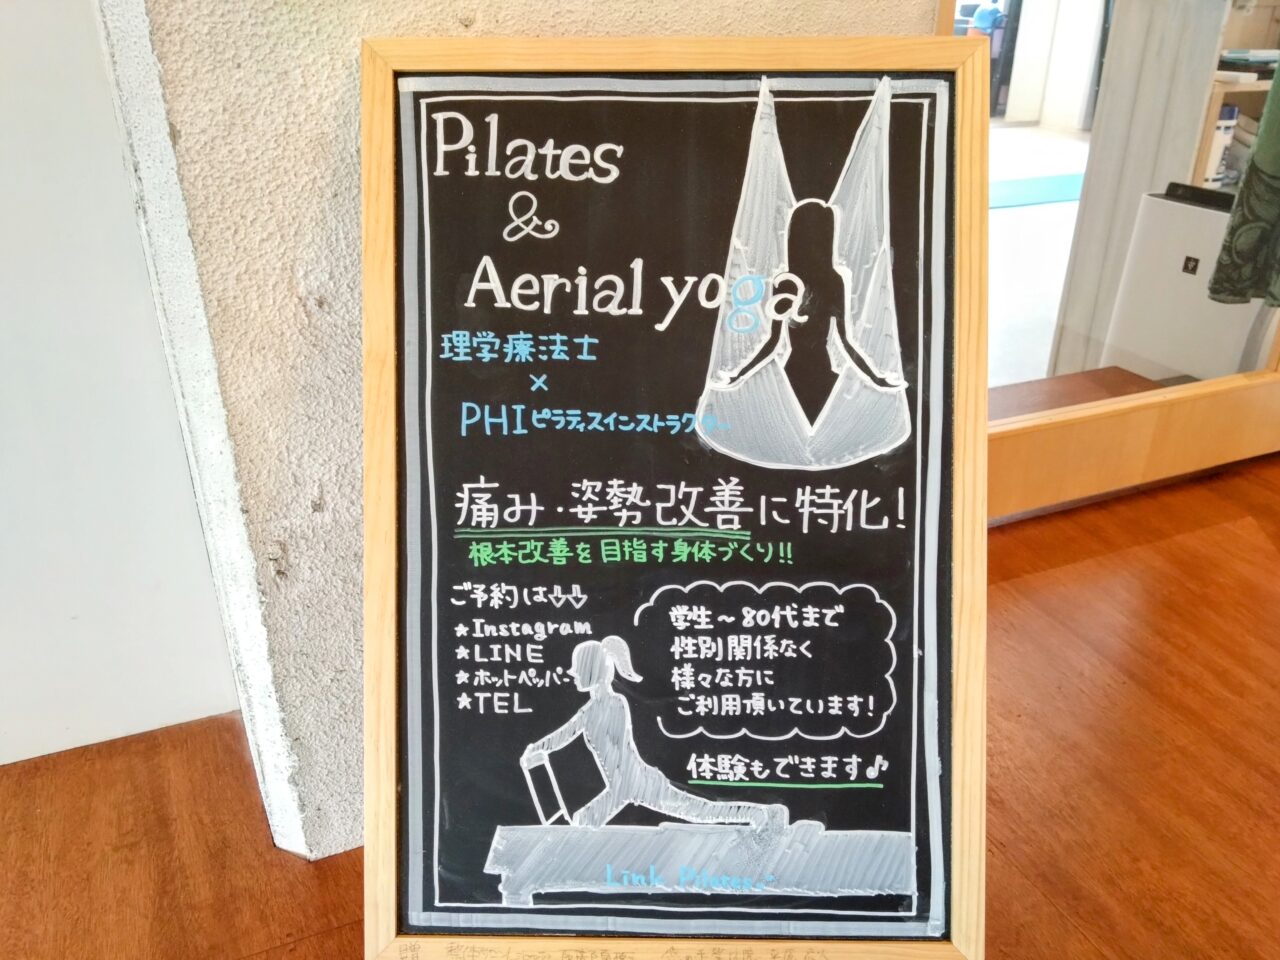 Pilates
&
Aerial yoga
理学療法士
×
PHIピラティスインストラクター
痛み・姿勢改善に特化!
根本改善を目指す身体づくり!!
ご予約は⇩⇩
★Instagram
★LINE
★ホットペッパー
★TEL
学生～80代まで
性別関係なく
様々な方に
ご利用頂いています!
体験もできます♪
Link Pilates
贈